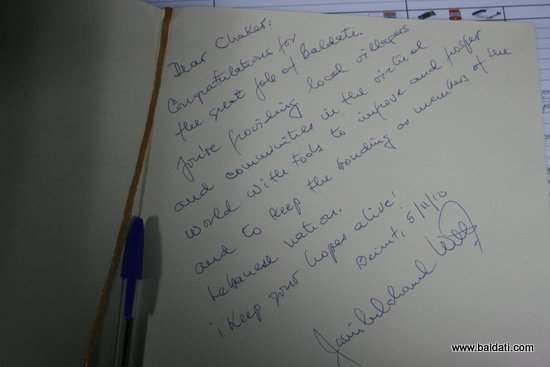 Dear Chaker:
Congratulations for
the great job of Baldati.
You're providing local villagers
and communities in the virtual
world with tools to improve and prosper
and to keep the bonding as members of the
Lebanese nation.
¡Keep your hopes alive!
Beirut, 5/11/10
www.baldati.com